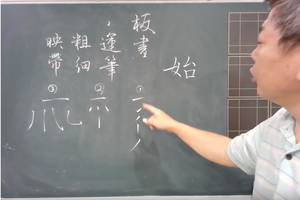 始
板書
、運筆
粗細
映帶
①
②
③